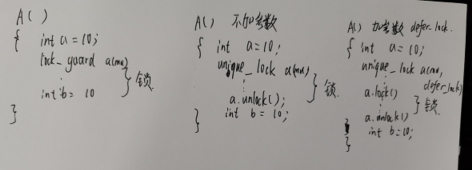 A( )
{
int a=10;
lock_guard a(mx)
int b = 10
}
锁
A( ) 不加参数
{ int a=10;
unique_lock a(mx)
⋮
a.unlock();
int b = 10;
}
锁
A( ) 加参数 defer_lock.
{ int a=10;
unique_lock a(mx,
defer_lock)
a.lock()
⋮
a.unlock()
int b=10;
}
锁